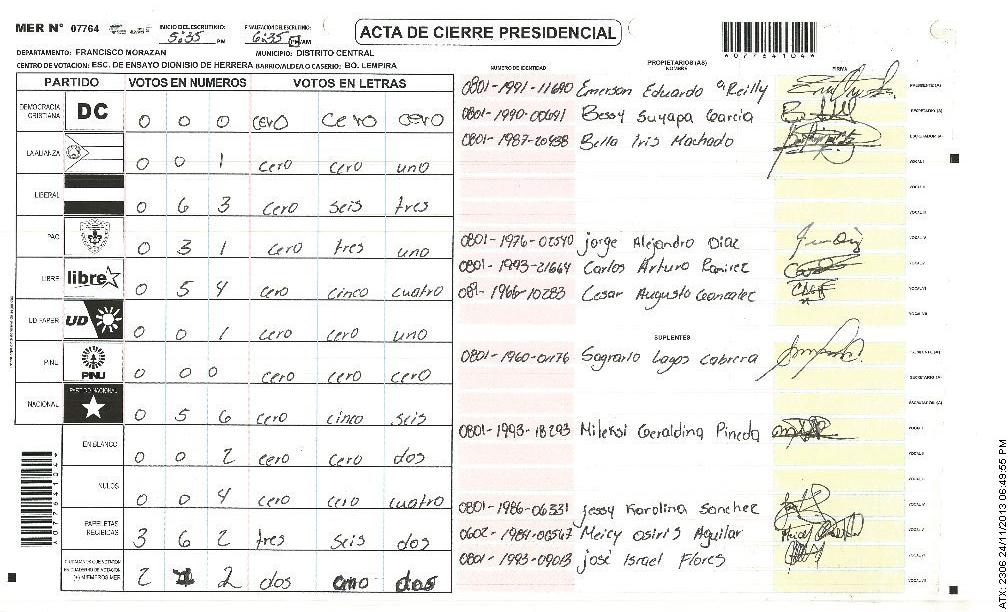 MER N° 07764 INICIO DEL ESCRUTINIO: 5:35 PM FINALIZACION DEL ESCRUTINIO: 6:35 PM/AM
ACTA DE CIERRE PRESIDENCIAL
*07764104*
DEPARTAMENTO: FRANCISCO MORAZAN MUNICIPIO: DISTRITO CENTRAL
CENTRO DE VOTACION: ESC. DE ENSAYO DIONISIO DE HERRERA BARRIO/ALDEA O CASERIO: BO. LEMPIRA
PARTIDO VOTOS EN NUMEROS VOTOS EN LETRAS
DEMOCRACIA CRISTIANA DC 0 0 0 cero cero cero
LA ALIANZA 0 0 1 cero cero uno
LIBERAL 0 6 3 cero seis tres
PAC 0 3 1 cero tres uno
LIBRE libre 0 5 4 cero cinco cuatro
UD FAPER UD 0 0 1 cero cero uno
PINU PINU 0 0 0 cero cero cero
NACIONAL PARTIDO NACIONAL 0 5 6 cero cinco seis
EN BLANCO 0 0 2 cero cero dos
NULOS 0 0 4 cero cero cuatro
PAPELETAS RECIBIDAS 3 6 2 tres seis dos
CIUDADANOS QUE VOTARON EN CUADERNO DE VOTACION (+) MIEMBROS MER 2 1 2 dos uno dos
NUMERO DE IDENTIDAD PROPIETARIOS (AS) NOMBRE FIRMA
0801-1991-11690 Emerson Eduardo O'Reilly PRESIDENTE(A)
0801-1990-00691 Bessy Suyapa Garcia SECRETARIO(A)
0801-1987-20438 Bella Iris Machado ESCRUTADOR(A)
0801-1976-02540 Jorge Alejandro Diaz
0801-1993-21664 Carlos Arturo Ramirez
081-1966-10283 Cesar Augusto Gonzalez
SUPLENTES
0801-1960-01176 Sagrario Lagos Cabrera
SECRETARIO(A)
ESCRUTADOR(A)
0801-1993-18293 Mileksi Geraldina Pineda
0801-1986-06331 Jessy Karolina Sanchez
0602-1984-00567 Meicy Osiris Aguilar
0801-1993-09013 José Israel Flores
ATX: 2306 24/11/2013 06:49:55 PM